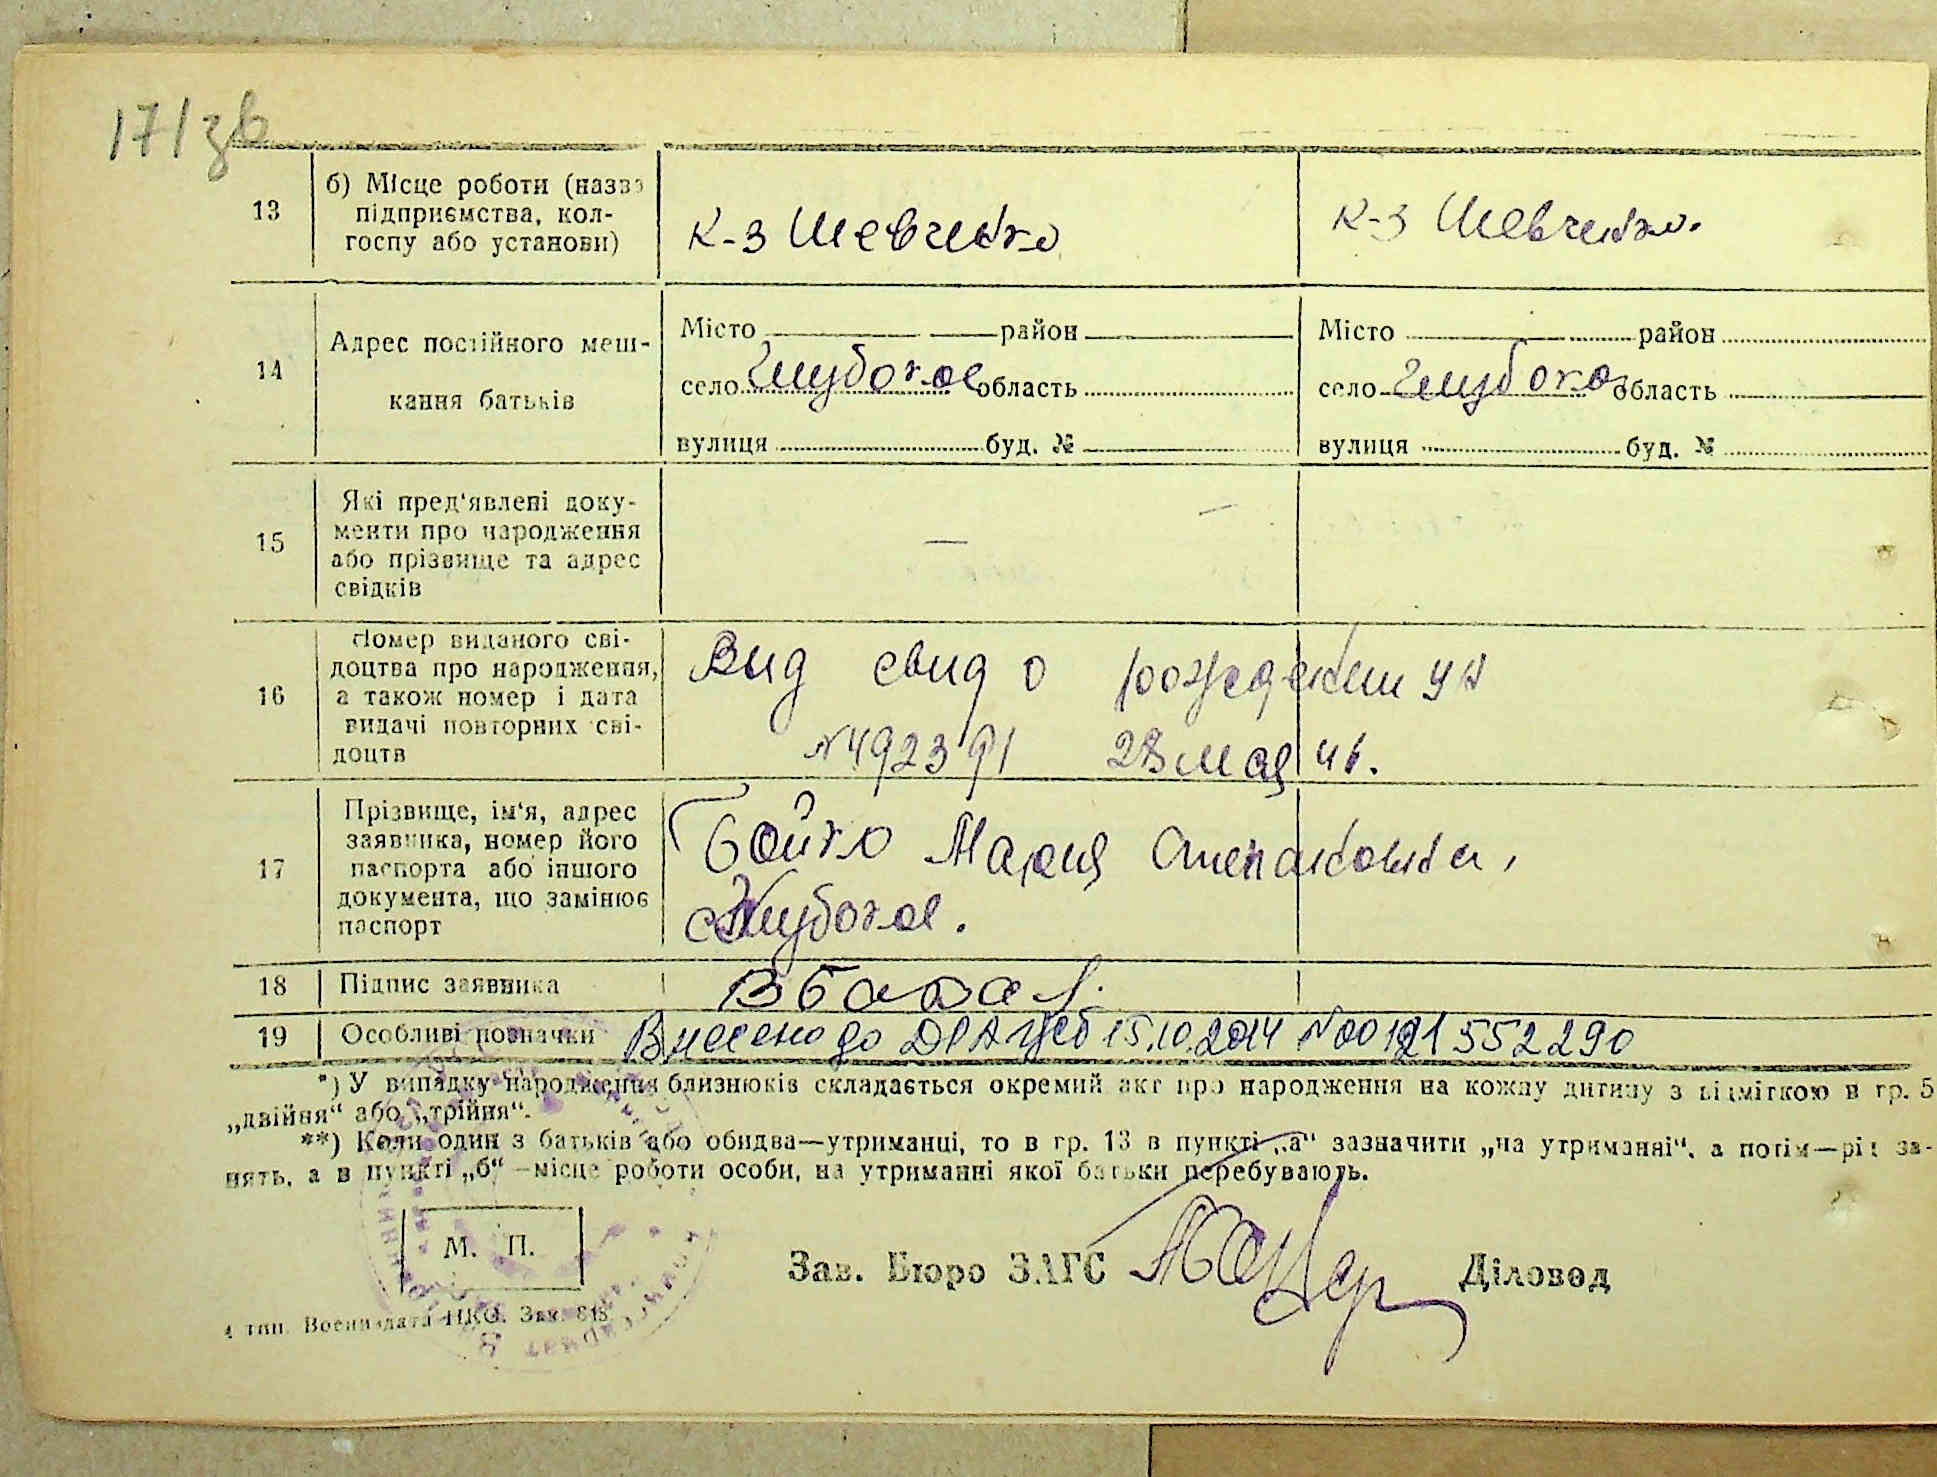 17/зв
13
б) Місце роботи (назва
підприємства, кол-
госпу або установи)
К-з Шевченко
К-з Шевченко.
14
Адрес постійного меш-
кання батьків
Місто район
село Глубокое область
вулиця буд. №
Місто район
село Глубокое область
вулиця буд. №
15
Які пред'явлені доку-
менти про народження
або прізвище та адрес
свідків
—
—
16
Номер виданого сві-
доцтва про народження,
а також номер і дата
видачі повторних сві-
доцтв
Выд свид о рождении
№492391 28 мая 46.
17
Прізвище, ім'я, адрес
заявника, номер його
паспорта або іншого
документа, що замінює
паспорт
Бойко Мария Степановна,
с Глубокое.
18
Підпис заявника
19
Особливі позначки
Внесено до ДРАЦС 15.10.2014 №00121552290
*) У випадку народження близнюків складається окремий акт про народження на кожну дитину з відміткою в гр. 5
„двійня“ або „трійня“.
**) Коли один з батьків або обидва—утриманці, то в гр. 13 в пункті „а“ зазначити „на утриманні“, а потім—рід за-
нять, а в пункті „б“ –місце роботи особи, на утриманні якої батьки перебувають.
М. П.
Зав. Бюро ЗАГС
Діловод
4 тип. Воениздата НКО. Зак. 818